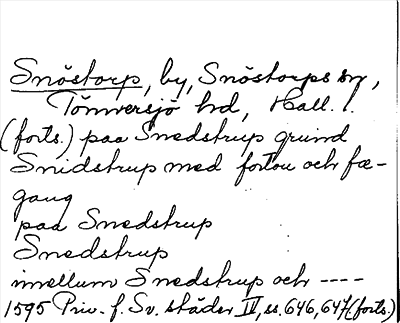 Snöstorp, by, Snöstorps sn,
Tönnersjö hd, Hall..
(forts.) paa Snedstrup grund
Snidstrup med fortou och fæ-
gang
paa Snedstrup
Snedstrup
imellum Snedstrup och ----
1595 Priv. f. Sv. städer IV, ss. 646, 647 (forts.)